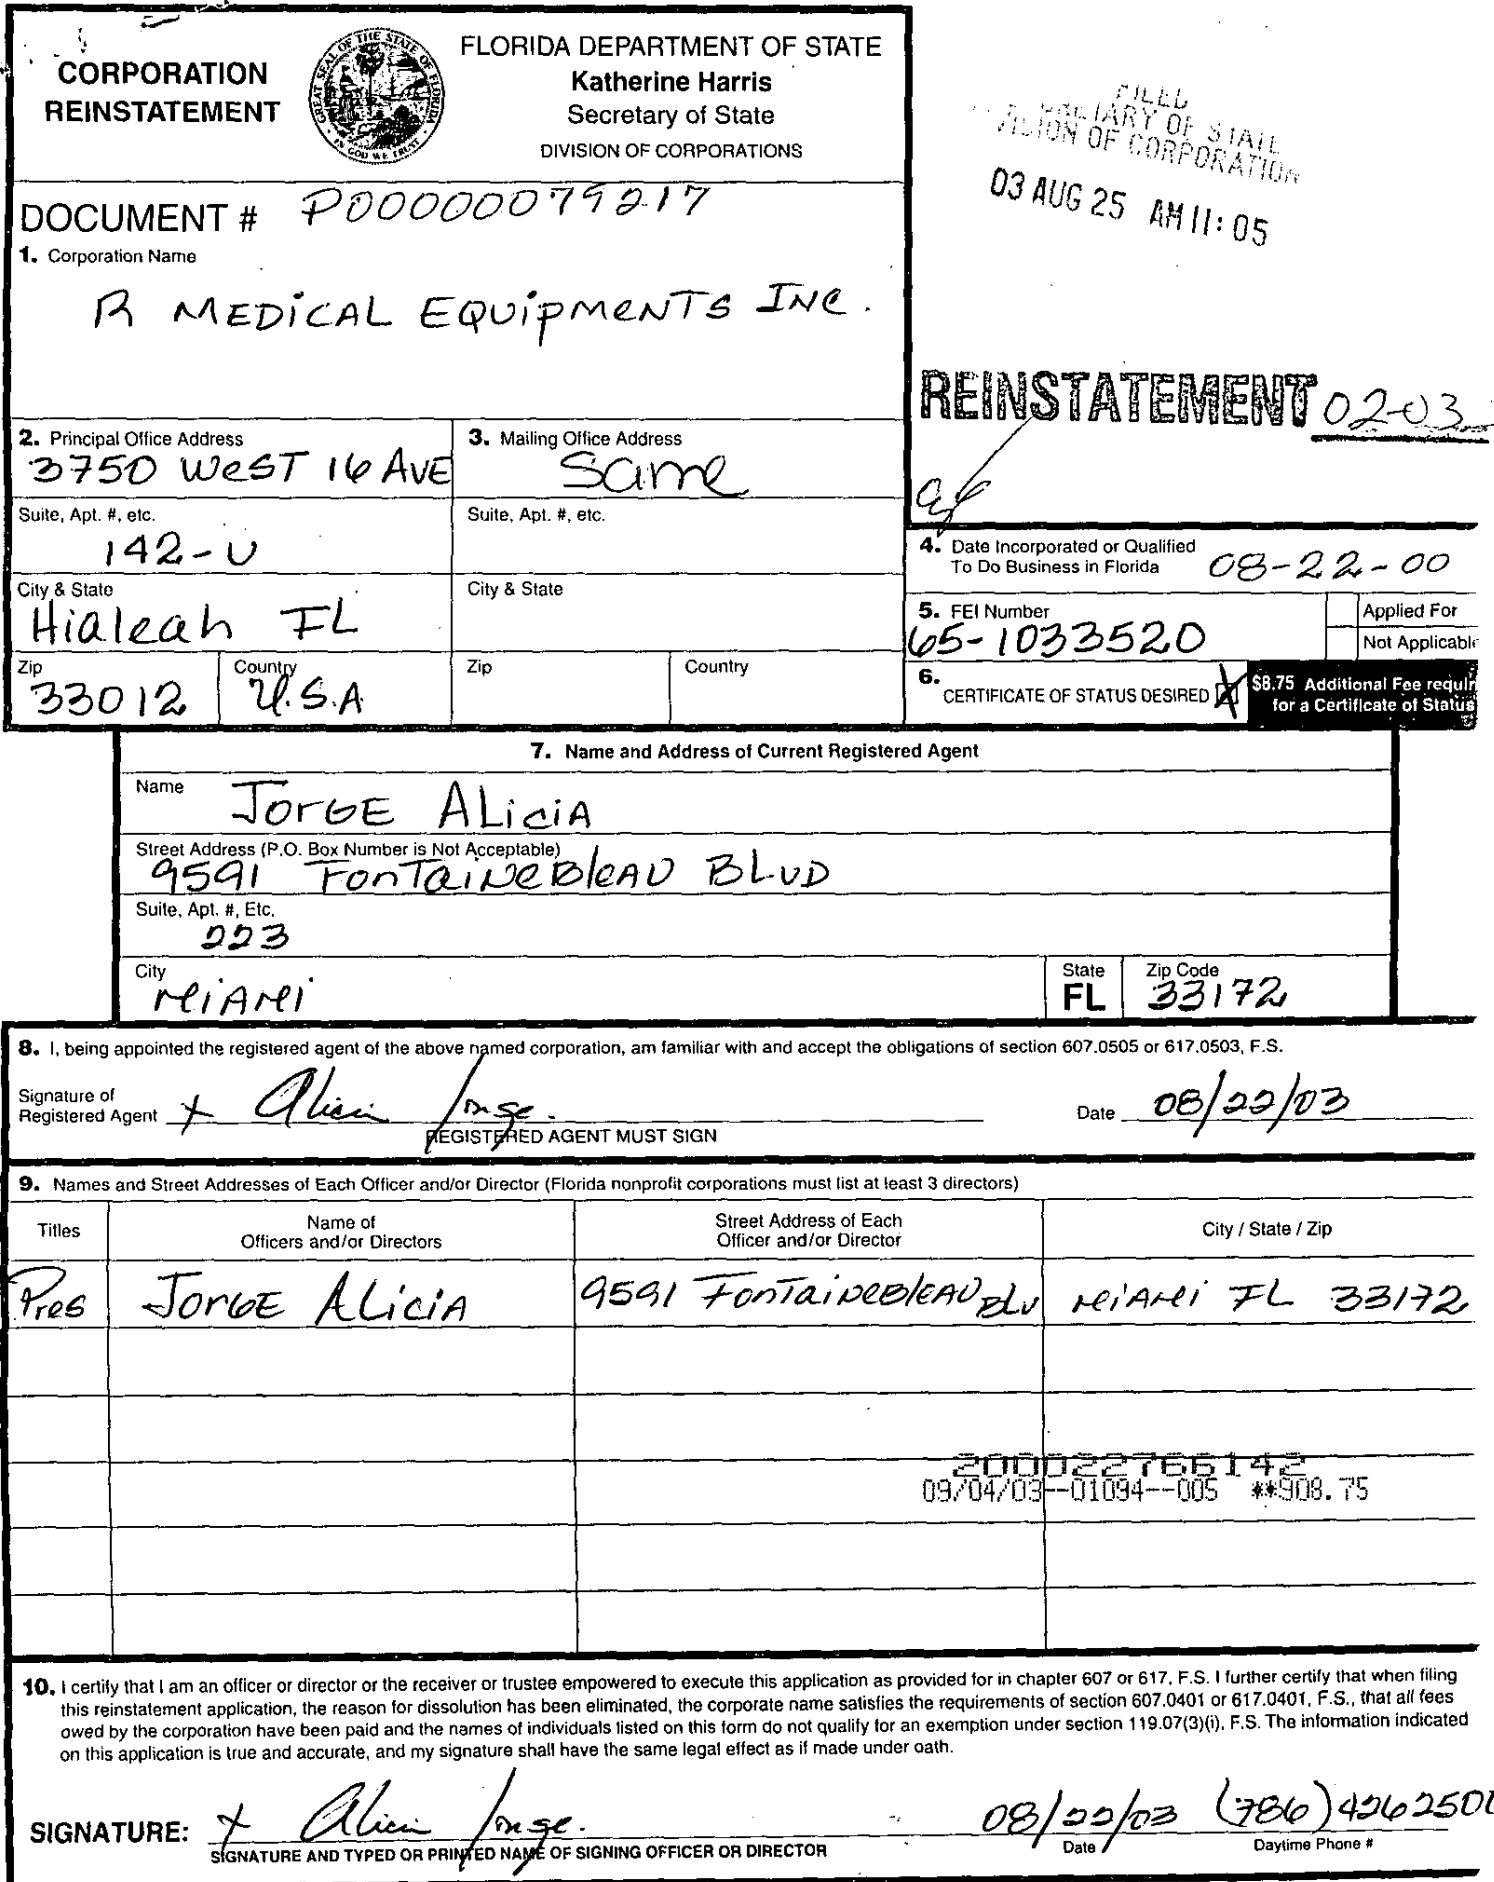 CORPORATION
REINSTATEMENT
GREAT SEAL OF THE STATE OF FLORIDA
IN GOD WE TRUST
FLORIDA DEPARTMENT OF STATE
Katherine Harris
Secretary of State
DIVISION OF CORPORATIONS
FILED
SECRETARY OF STATE
DIVISION OF CORPORATION
03 AUG 25 AM 11:05
DOCUMENT # P00000079217
1. Corporation Name
R MEDICAL EQUIPMENTS INC.
REINSTATEMENT 02-03
2. Principal Office Address
3750 WEST 16 AVE
3. Mailing Office Address
Same
Suite, Apt. #, etc.
142-U
Suite, Apt. #, etc.
4. Date Incorporated or Qualified
To Do Business in Florida 08-22-00
City & State
Hialeah FL
City & State
5. FEI Number
65-1033520
Applied For
Not Applicable
Zip
33012
Country
U.S.A
Zip
Country
6. CERTIFICATE OF STATUS DESIRED X
$8.75 Additional Fee requir
for a Certificate of Status
7. Name and Address of Current Registered Agent
Name
JORGE ALiciA
Street Address (P.O. Box Number is Not Acceptable)
9591 FonTaineBleAU BLVD
Suite, Apt. #, Etc.
223
City
MiAMi
State
FL
Zip Code
33172
8. I, being appointed the registered agent of the above named corporation, am familiar with and accept the obligations of section 607.0505 or 617.0503, F.S.
Signature of
Registered Agent x Alicia Jorge.
Date 08/22/03
REGISTERED AGENT MUST SIGN
9. Names and Street Addresses of Each Officer and/or Director (Florida nonprofit corporations must list at least 3 directors)
Titles
Name of
Officers and/or Directors
Street Address of Each
Officer and/or Director
City / State / Zip
Pres JORGE ALiciA 9591 FonTaineBleAU BLV MiAMi FL 33172
200022766142
09/04/03--01094--005 **908.75
10. I certify that I am an officer or director or the receiver or trustee empowered to execute this application as provided for in chapter 607 or 617, F.S. I further certify that when filing
this reinstatement application, the reason for dissolution has been eliminated, the corporate name satisfies the requirements of section 607.0401 or 617.0401, F.S., that all fees
owed by the corporation have been paid and the names of individuals listed on this form do not qualify for an exemption under section 119.07(3)(i), F.S. The information indicated
on this application is true and accurate, and my signature shall have the same legal effect as if made under oath.
SIGNATURE: x Alicia Jorge. 08/22/03 (786)4262500
SIGNATURE AND TYPED OR PRINTED NAME OF SIGNING OFFICER OR DIRECTOR
Date
Daytime Phone #